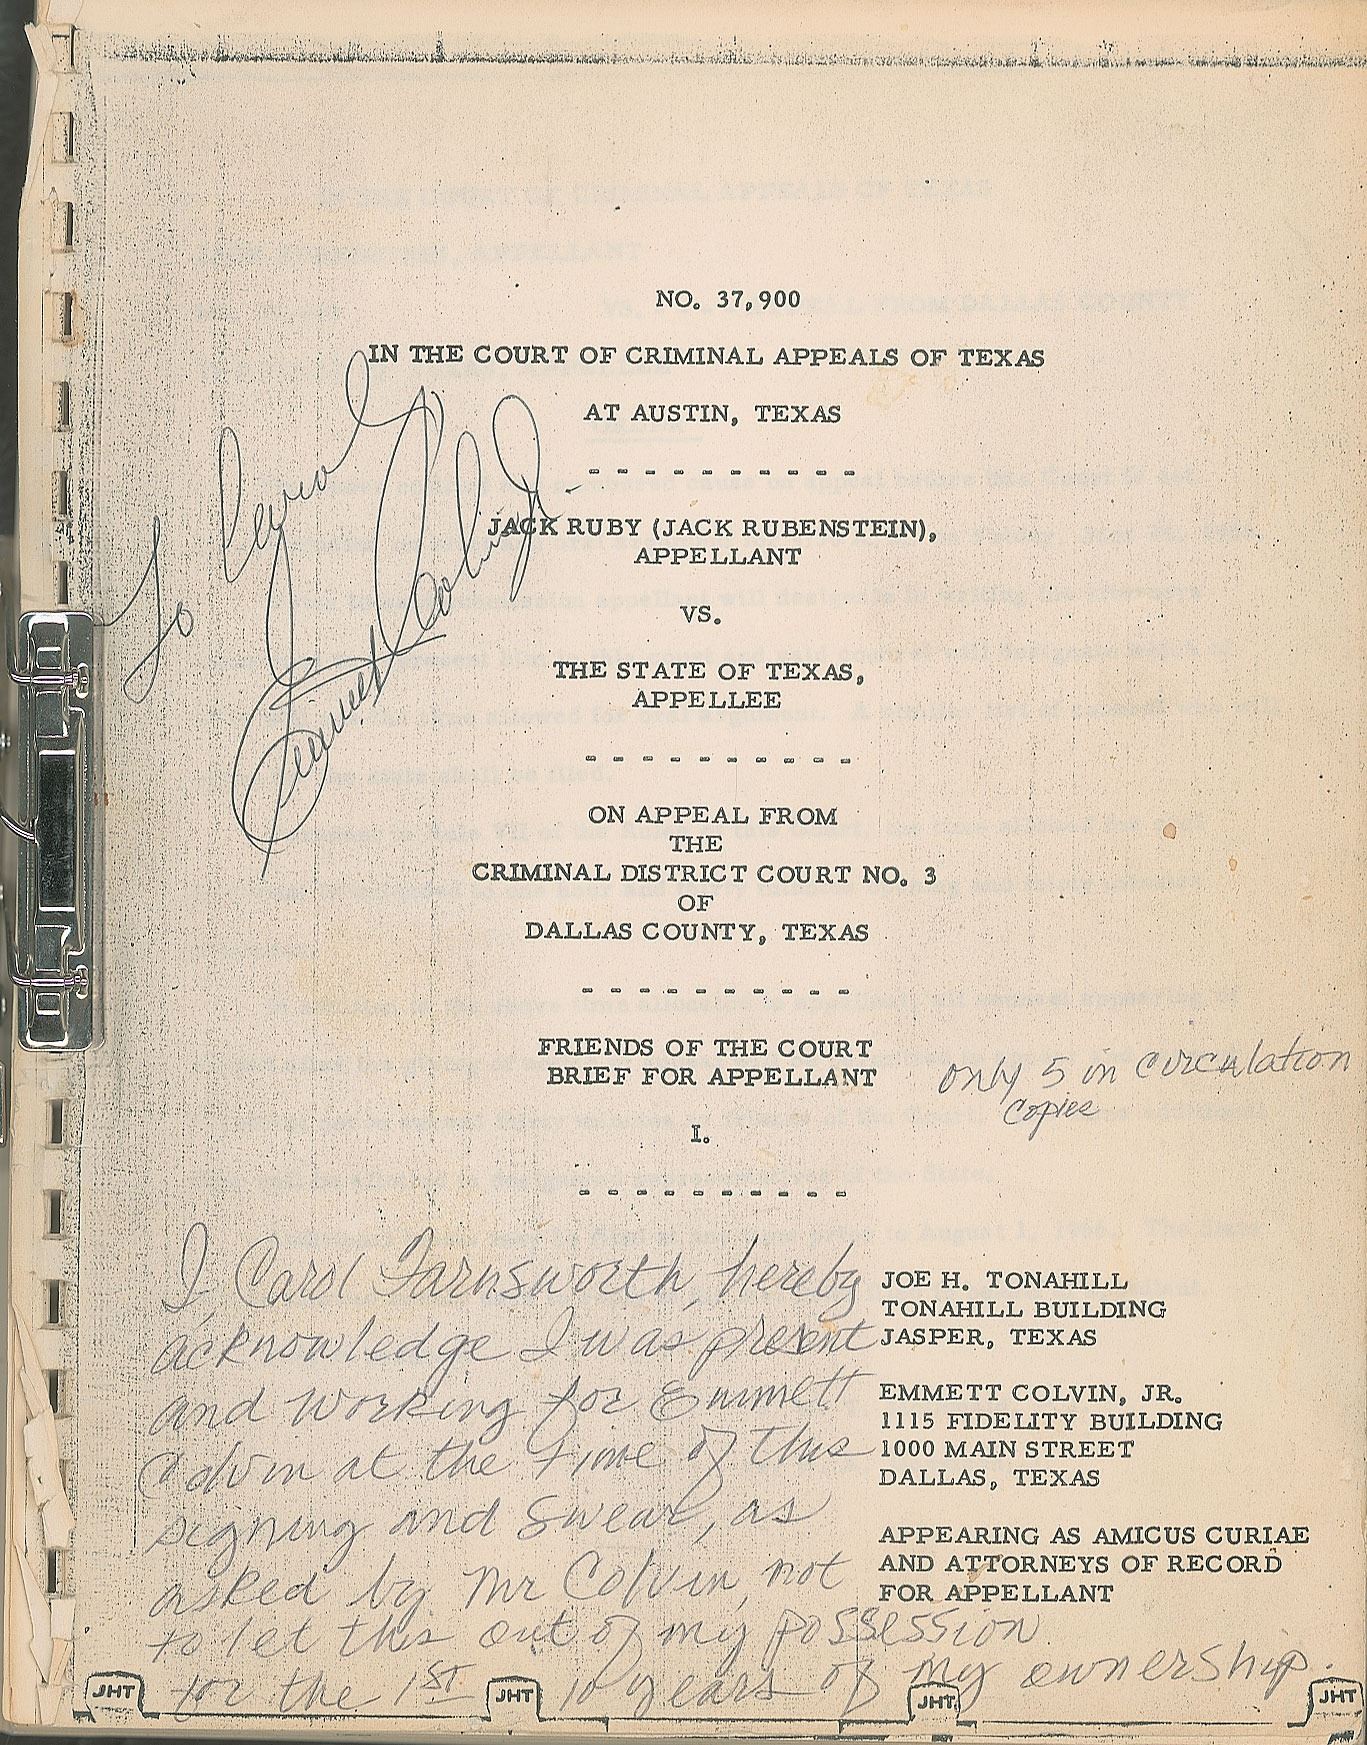 NO. 37,900
IN THE COURT OF CRIMINAL APPEALS OF TEXAS
AT AUSTIN, TEXAS
- - - - - - - - - -
JACK RUBY (JACK RUBENSTEIN),
APPELLANT
VS.
THE STATE OF TEXAS,
APPELLEE
- - - - - - - - - -
ON APPEAL FROM
THE
CRIMINAL DISTRICT COURT NO. 3
OF
DALLAS COUNTY, TEXAS
- - - - - - - - - -
FRIENDS OF THE COURT
BRIEF FOR APPELLANT
I.
- - - - - - - - - -
To Carol
Emmett Colvin Jr.
only 5 in circulation
copies
I, Carol Farnsworth, hereby
acknowledge I was present
and working for Emmett
Colvin at the time of this
signing and swear, as
asked by Mr Colvin, not
to let this out of my possession
for the 1ST 10 years of my ownership.
JOE H. TONAHILL
TONAHILL BUILDING
JASPER, TEXAS
EMMETT COLVIN, JR.
1115 FIDELITY BUILDING
1000 MAIN STREET
DALLAS, TEXAS
APPEARING AS AMICUS CURIAE
AND ATTORNEYS OF RECORD
FOR APPELLANT
JHT JHT JHT JHT